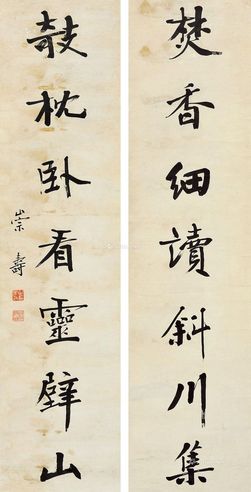 焚香細讀斜川集
敧枕卧看靈壁山
崇壽